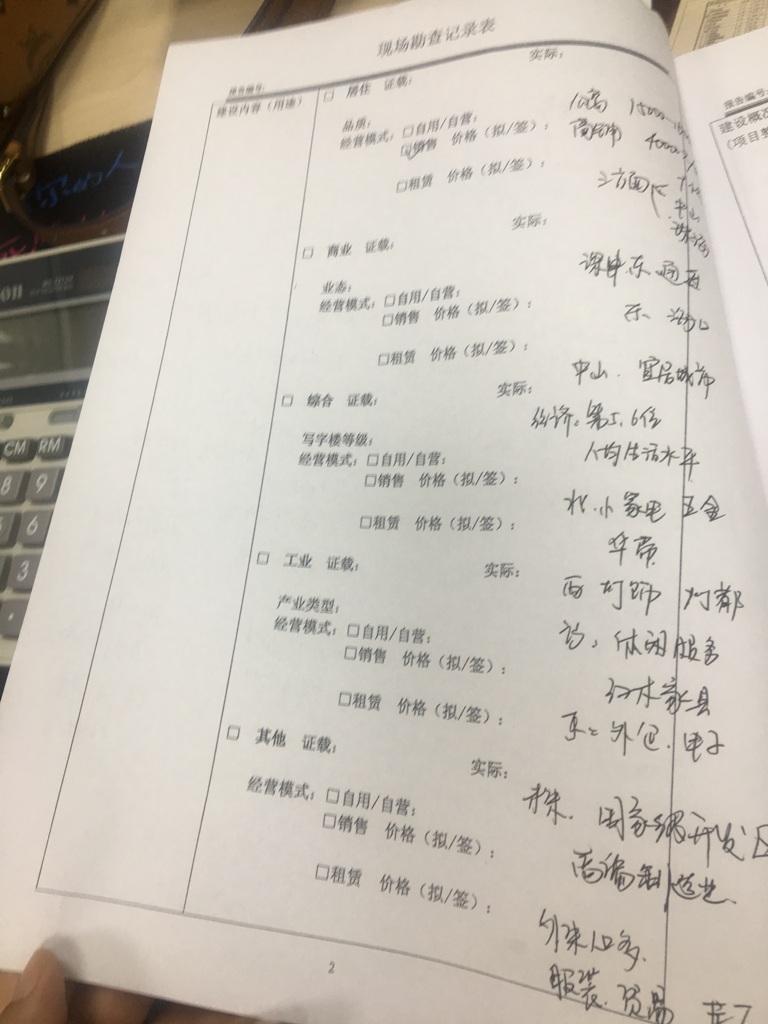 现场勘查记录表
报告编号:
建设内容（用途）
□ 居住 证载: 实际:
品质:
经营模式: □自用/自营:
□销售 价格（拟/签）:
□租赁 价格（拟/签）:
□ 商业 证载: 实际:
业态:
经营模式: □自用/自营:
□销售 价格（拟/签）:
□租赁 价格（拟/签）:
□ 综合 证载: 实际:
写字楼等级:
经营模式: □自用/自营:
□销售 价格（拟/签）:
□租赁 价格（拟/签）:
□ 工业 证载: 实际:
产业类型:
经营模式: □自用/自营:
□销售 价格（拟/签）:
□租赁 价格（拟/签）:
□ 其他 证载: 实际:
经营模式: □自用/自营:
□销售 价格（拟/签）:
□租赁 价格（拟/签）:
2
中山. 宜居城市
经济: 第5、6位
人均生活水平
小家电 五金
华帝
灯饰 灯都
休闲服务
红木家具
外包. 电子
国家级开发区
高端制造业.
外来人口多.
服装. 贸易
报告编号:
建设概况
（项目整
CM RM
8 9
6
3